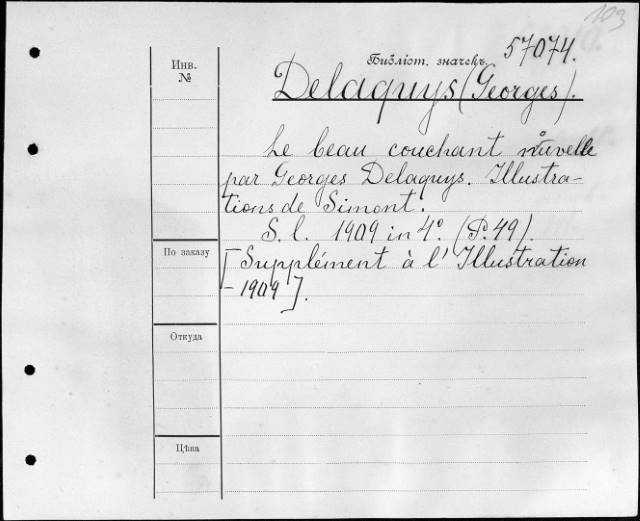 103
Инв.
№
Библіот. значекъ. 57074.
Delaquys (Georges).
Le beau couchant nouvelle
par Georges Delaquys. Illustra-
tions de Simont.
S. l. 1909 in 4°. (P. 49).
По заказу
[Supplément à l'Illustration
- 1909].
Откуда
Цѣна